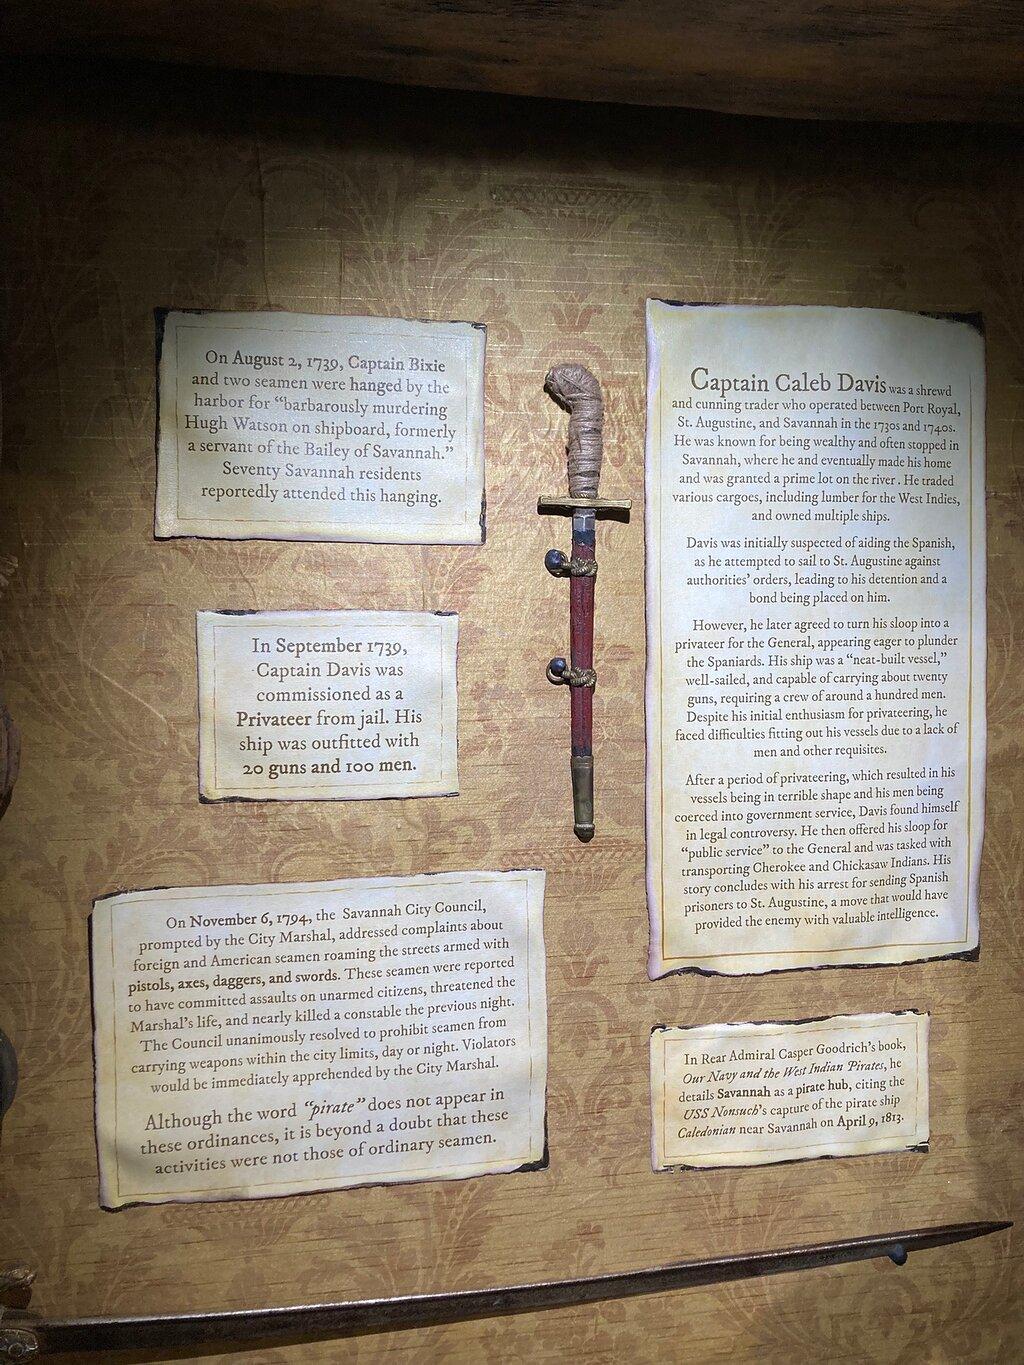 On August 2, 1739, Captain Bixie
and two seamen were hanged by the
harbor for “barbarously murdering
Hugh Watson on shipboard, formerly
a servant of the Bailey of Savannah.”
Seventy Savannah residents
reportedly attended this hanging.
In September 1739,
Captain Davis was
commissioned as a
Privateer from jail. His
ship was outfitted with
20 guns and 100 men.
On November 6, 1794, the Savannah City Council,
prompted by the City Marshal, addressed complaints about
foreign and American seamen roaming the streets armed with
pistols, axes, daggers, and swords. These seamen were reported
to have committed assaults on unarmed citizens, threatened the
Marshal’s life, and nearly killed a constable the previous night.
The Council unanimously resolved to prohibit seamen from
carrying weapons within the city limits, day or night. Violators
would be immediately apprehended by the City Marshal.
Although the word “pirate” does not appear in
these ordinances, it is beyond a doubt that these
activities were not those of ordinary seamen.
Captain Caleb Davis was a shrewd
and cunning trader who operated between Port Royal,
St. Augustine, and Savannah in the 1730s and 1740s.
He was known for being wealthy and often stopped in
Savannah, where he and eventually made his home
and was granted a prime lot on the river . He traded
various cargoes, including lumber for the West Indies,
and owned multiple ships.
Davis was initially suspected of aiding the Spanish,
as he attempted to sail to St. Augustine against
authorities’ orders, leading to his detention and a
bond being placed on him.
However, he later agreed to turn his sloop into a
privateer for the General, appearing eager to plunder
the Spaniards. His ship was a “neat-built vessel,”
well-sailed, and capable of carrying about twenty
guns, requiring a crew of around a hundred men.
Despite his initial enthusiasm for privateering, he
faced difficulties fitting out his vessels due to a lack of
men and other requisites.
After a period of privateering, which resulted in his
vessels being in terrible shape and his men being
coerced into government service, Davis found himself
in legal controversy. He then offered his sloop for
“public service” to the General and was tasked with
transporting Cherokee and Chickasaw Indians. His
story concludes with his arrest for sending Spanish
prisoners to St. Augustine, a move that would have
provided the enemy with valuable intelligence.
In Rear Admiral Casper Goodrich’s book,
Our Navy and the West Indian Pirates, he
details Savannah as a pirate hub, citing the
USS Nonsuch’s capture of the pirate ship
Caledonian near Savannah on April 9, 1813.